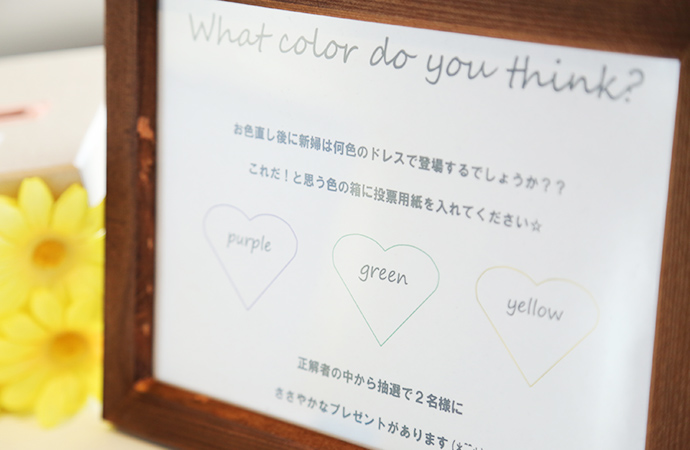 What color do you think?
お色直し後に新婦は何色のドレスで登場するでしょうか？？
これだ！と思う色の箱に投票用紙を入れてください☆
purple
green
yellow
正解者の中から抽選で２名様に
ささやかなプレゼントがあります